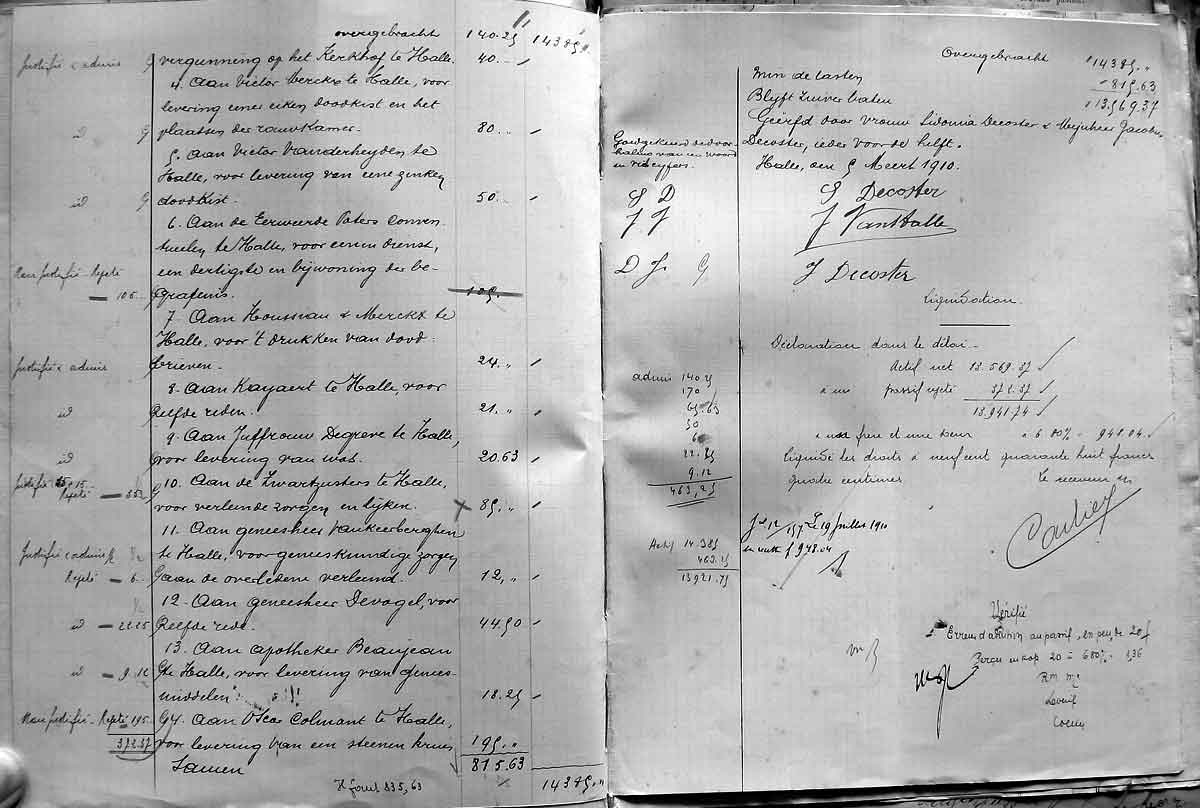 overgebracht 140.25 14385 "
Justifié & admis G vergunning op het Kerkhof te Halle. 40 ..
4. Aan Victor Merckx te Halle, voor
levering eener eiken doodkist en het
id G plaatsen der rouwkamer. 80 ..
5. Aan Victor Vanderheyden te
Halle, voor levering van eene zinken
id G doodkist. 50 ..
6. Aan de Eerweerde Paters Conven
tueelen te Halle, voor eenen dienst,
Non justifié - Rejeté een dertigste en bijwoning der be-
— 105 .. grafenis. 105.
7. Aan Houssiau & Merckx te
Halle, voor 't drukken van dood-
Justifié & admis brieven. 24 ..
8. Aan Kayaert te Halle, voor
id zelfde reden. 21 "
9. Aan Juffrouw Degreve te Halle,
id voor levering van was. 20.63
Justifié G 10. Aan de Zwartzusters te Halle,
Rejeté — voor verleende zorgen en lijken. 85 "
11. Aan geneesheer Vankeerberghen
Justifié & admis te Halle, voor geneeskundige zorgen
Rejeté — 6. G aan de overledene verleend. 12, "
12. Aan geneesheer Devogel, voor
id — 22.25 zelfde rede. 44.50
13. Aan apotheker Beaujean
id — 9.12 G te Halle, voor levering van genees-
middelen 18.25
Non justifié - Rejeté 195 G 14. Aan Oscar Colmant te Halle,
372.37 voor levering van een steenen kruis 195 "
Samen 815.63
X faut 835,63 14385 "
Overgebracht 14385 "
Min de lasten 815.63
Blijft zuiver baten 13.569.37
Geërfd door vrouw Sidonia Decoster & Mijnheer Jacobus
Goedgekeurd de door-
haling van een woord
en vijf cijfers.
Decoster, ieder voor de helft.
Halle, den 5 Meert 1910.
S D S Decoster
J J J VanHalle
D J. G J Decoster
Liquidation.
Déclaration dans le délai.
Actif net 13.569.37
passif rejeté 372.37
13.941.74
frère et une soeur à 6.80% 948.04
liquidé les droits à neuf cent quarante huit francs
quatre centimes. Le receveur
admis 140.25
170
65.63
50
6
22.25
9.12
463,25
Le 19 Juillet 1910
f 948.04
Actif 14.385
463.25
13921.75
Vérifié
Erreur d'addition au passif, en peu, de 20 f
20 à 6.80% 1,36